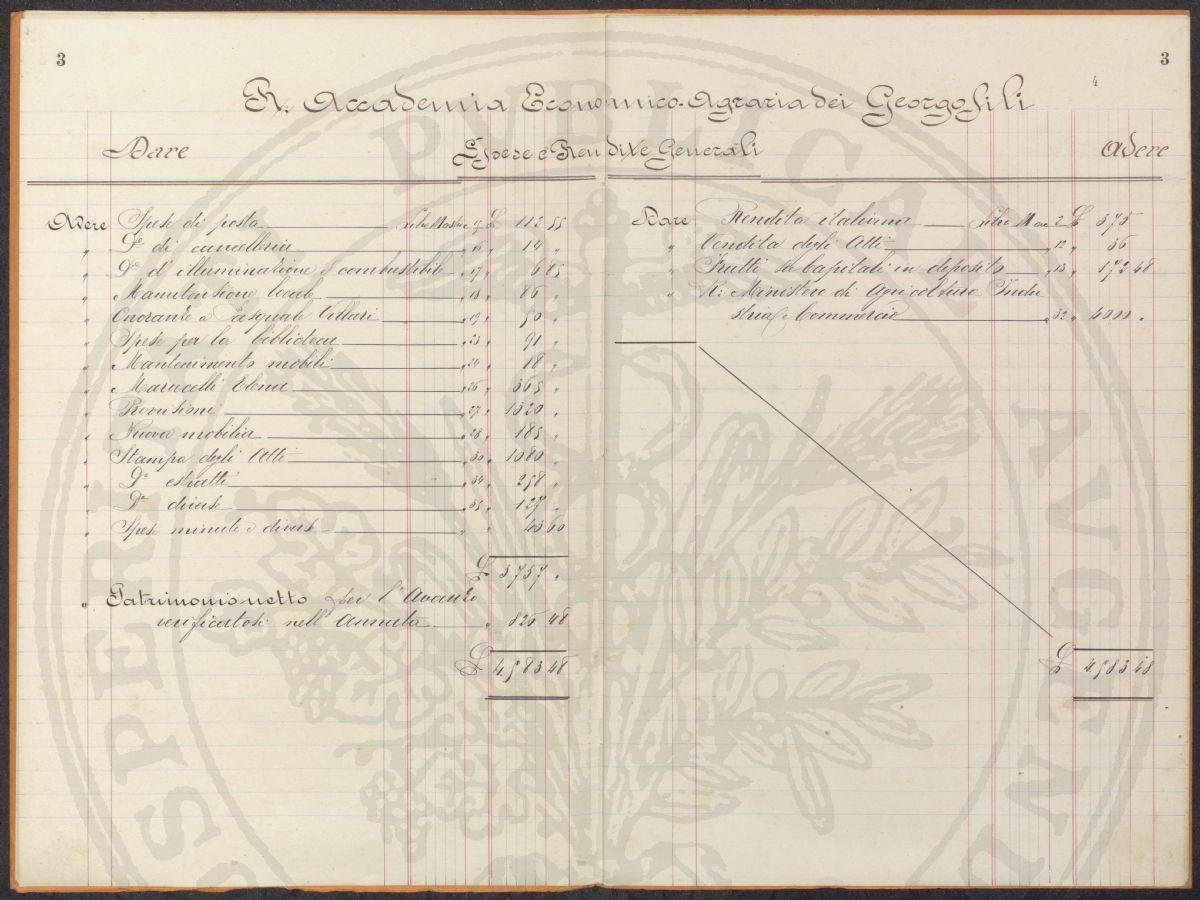 3
3
4
R. Accademia Economico-Agraria dei Georgofili
Dare Spese e Rendite Generali Avere
Avere Spese di posta Libro Mastro 15 £ 112 55
" D.e di cancelleria " 16 " 14 "
" D.e d'illuminazione e combustibile " 17 " 6 85
" Manutenzione locale " 18 " 86 "
" Onoranze a Pasquale Villari " 19 " 50 "
" Spese per la biblioteca " 23 " 91 "
" Mantenimento mobili " 24 " 18 "
" Marucelli Elena " 26 " 365 "
" Provvisioni " 27 " 1320 "
" Nuova mobilia " 28 " 185 "
" Stampa degli Atti " 30 " 1080 "
" D.e estratti " 34 " 258 "
" D.e diverse " 35 " 127 "
" Spese minute e diverse " " 43 60
£ 3757 "
" Patrimonio netto per l'Avanzo
verificatosi nell'Annata " 826 48
£ 4583 48
Dare Rendita italiana Libro M.ro 2 £ 375
" Vendita degli Atti " 12 " 36
" Frutti su Capitali in deposito " 13 " 172 48
" R: Ministero di Agricoltura Indu
stria e Commercio " 32 " 4000 "
£ 4583 48
SPERI
PVBLICA
AVGEND